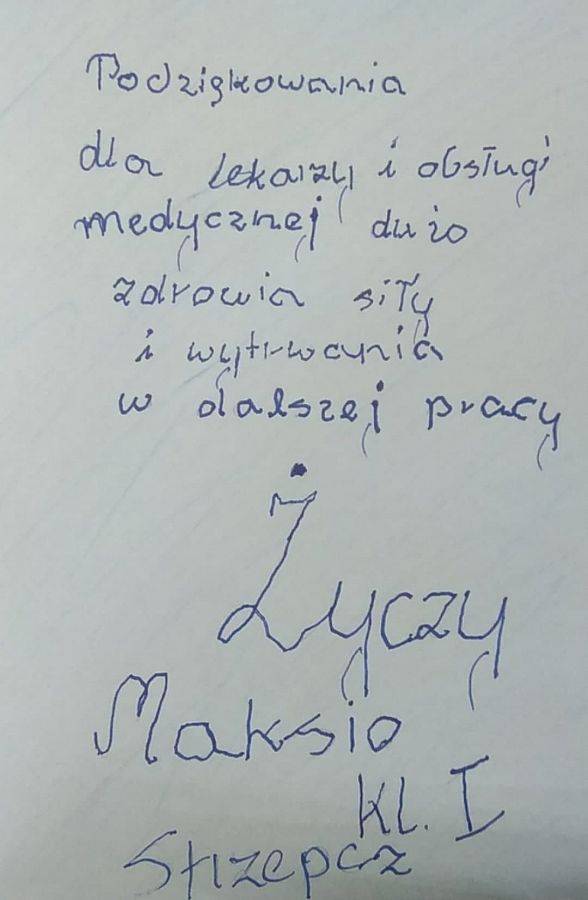 Podziękowania
dla lekarzy i obsługi
medycznej dużo
zdrowia siły
i wytrwania
w dalszej pracy
Życzy
Maksio
kl. I
Strzepcz